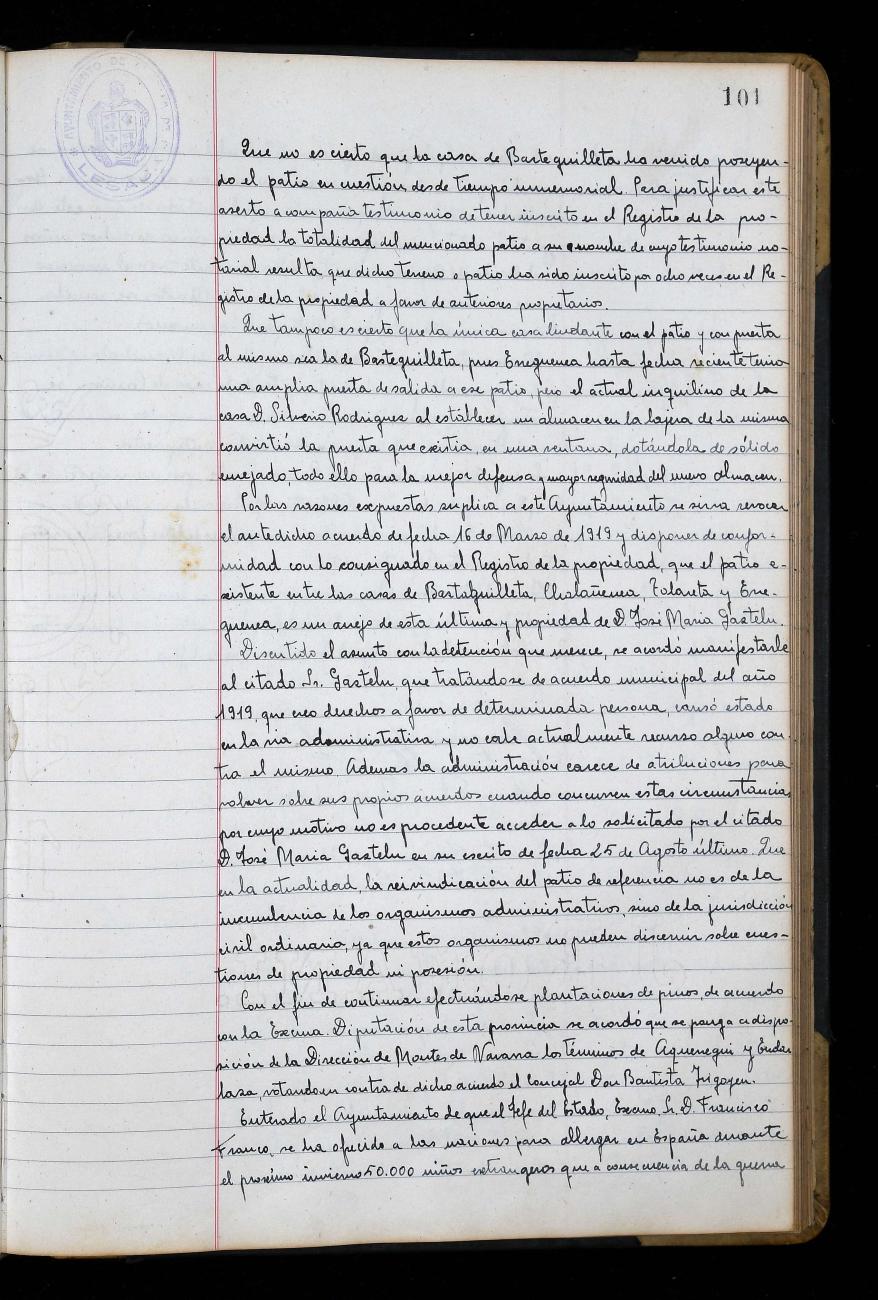 101
AYUNTAMIENTO DE
LESACA
Que no es cierto que la casa de Bartequilleta ha venido poseyen-
do el patio en cuestión desde tiempo inmemorial. Para justificar este
aserto acompaña testimonio de tener inscrito en el Registro de la pro-
piedad la totalidad del mencionado patio a su nombre de cuyo testimonio no-
tarial resulta que dicho terreno o patio ha sido inscrito por ocho veces en el Re-
gistro de la propiedad a favor de anteriores propietarios.
Que tampoco es cierto que la única casa lindante con el patio y con puerta
al mismo sea la de Bartequilleta, pues Eneguenea hasta fecha reciente tenia
una amplia puerta de salida a ese patio, pero el actual inquilino de la
casa D. Silverio Rodriguez al establecer un almacen en la bajera de la misma
convirtió la puerta que existia, en una ventana, dotándola de sólido
enrejado, todo ello para la mejor defensa y mayor seguridad del nuevo almacen.
Por las razones expuestas suplica a este Ayuntamiento se sirva revocar
el antedicho acuerdo de fecha 16 de Marzo de 1919 y disponer de confor-
midad con lo consignado en el Registro de la propiedad, que el patio e-
xistente entre las casas de Bartaquilleta, Chalañenea, Tolareta y Ene-
guenea, es un anejo de esta última y propiedad de D. José Maria Gaztelu.
Discutido el asunto con la detención que merece, se acordó manifestarle
al citado Sr. Gaztelu, que tratándose de acuerdo municipal del año
1919, que creo derechos a favor de determinada persona, causó estado
en la via administrativa y no cabe actualmente recurso alguno con-
tra el mismo. Ademas la administración carece de atribuciones para
volver sobre sus propios acuerdos cuando concurren estas circunstancias
por cuyo motivo no es procedente acceder a lo solicitado por el citado
D. José Maria Gaztelu en su escrito de fecha 25 de Agosto último. Que
en la actualidad, la reivindicación del patio de referencia no es de la
incumbencia de los organismos administrativos, sino de la jurisdicción
civil ordinaria, ya que estos organismos no pueden discernir sobre cues-
tiones de propiedad ni posesión.
Con el fin de continuar efectuándose plantaciones de pinos, de acuerdo
con la Excma. Diputación de esta provincia se acordó que se ponga a dispo-
sición de la Dirección de Montes de Navarra los términos de Aguenegui y Endar
laza, votando en contra de dicho acuerdo el Concejal Don Bautista Irigoyen.
Enterado el Ayuntamiento de que el Jefe del Estado, Excmo. Sr. D. Francisco
Franco, se ha ofrecido a las naciones para albergar en España durante
el proximo invierno 50.000 niños extrangeros que a consecuencia de la guerra